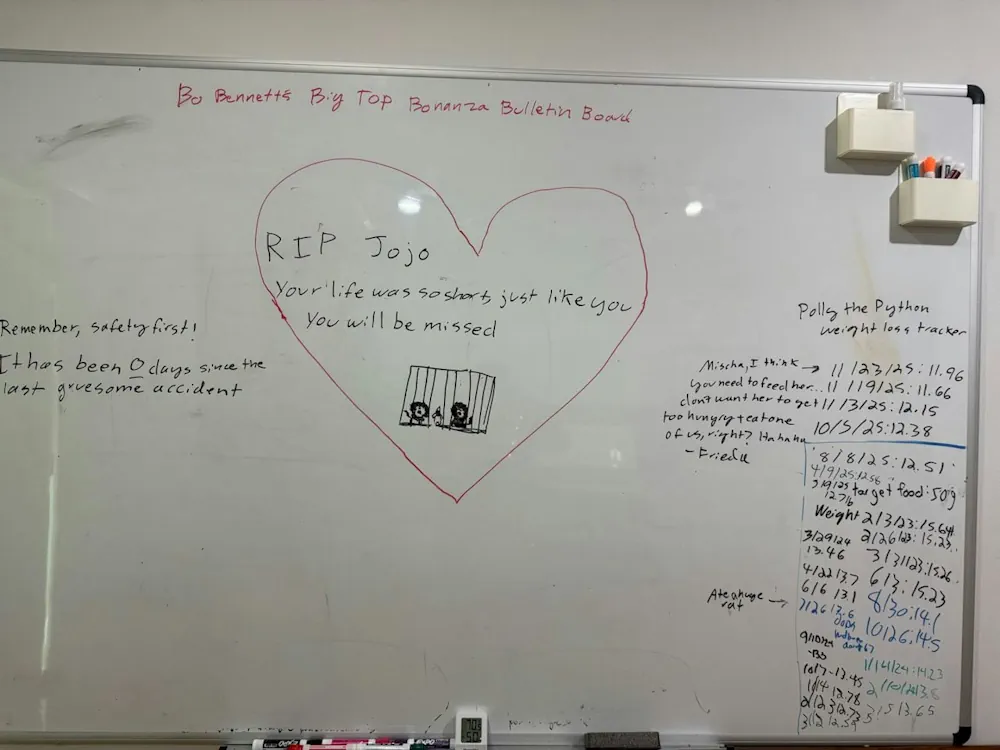 Bo Bennett's Big Top Bonanza Bulletin Board
RIP Jojo
Your life was so short, just like you
You will be missed
Remember, safety first!
It has been 0 days since the
last gruesome accident
Polly the Python
weight loss tracker
Mischa, I think
you need to feed her...
don't want her to get
too hungry + eat one
of us, right? Hahaha
- Frieda
11/23/25: 11.96
11/19/25: 11.66
11/3/25: 12.15
10/5/25: 12.38
8/8/25: 12.51
4/9/25: 12.56
3/9/25
12.76
target food: 50g
Weight 2/3/23: 15.64
2/26/23: 15.23
3/29/24
13.46
3/31/23: 15.26
4/22 13.7
6/3: 15.23
6/6 13.1
8/30: 14.1
Ate a huge
rat
7/26 13.6
oops
10/26: 14.5
9/10/24
-Bo
1/14/24: 14.23
10/7 - 13.45
11/4 12.78
3/5 13.65
3/2 12.52
EXPO